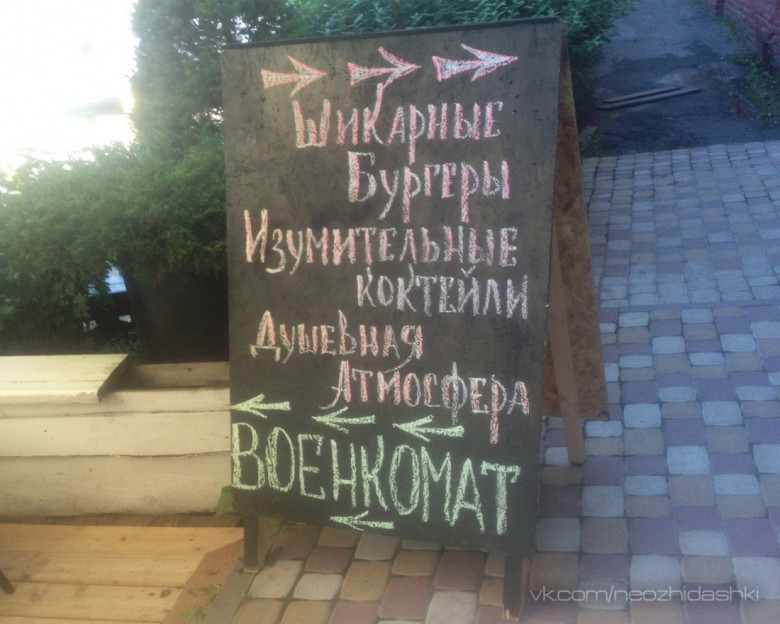 Шикарные
Бургеры
Изумительные
коктейли
Душевная
Атмосфера
ВОЕНКОМАТ
vk.com/neozhidashki